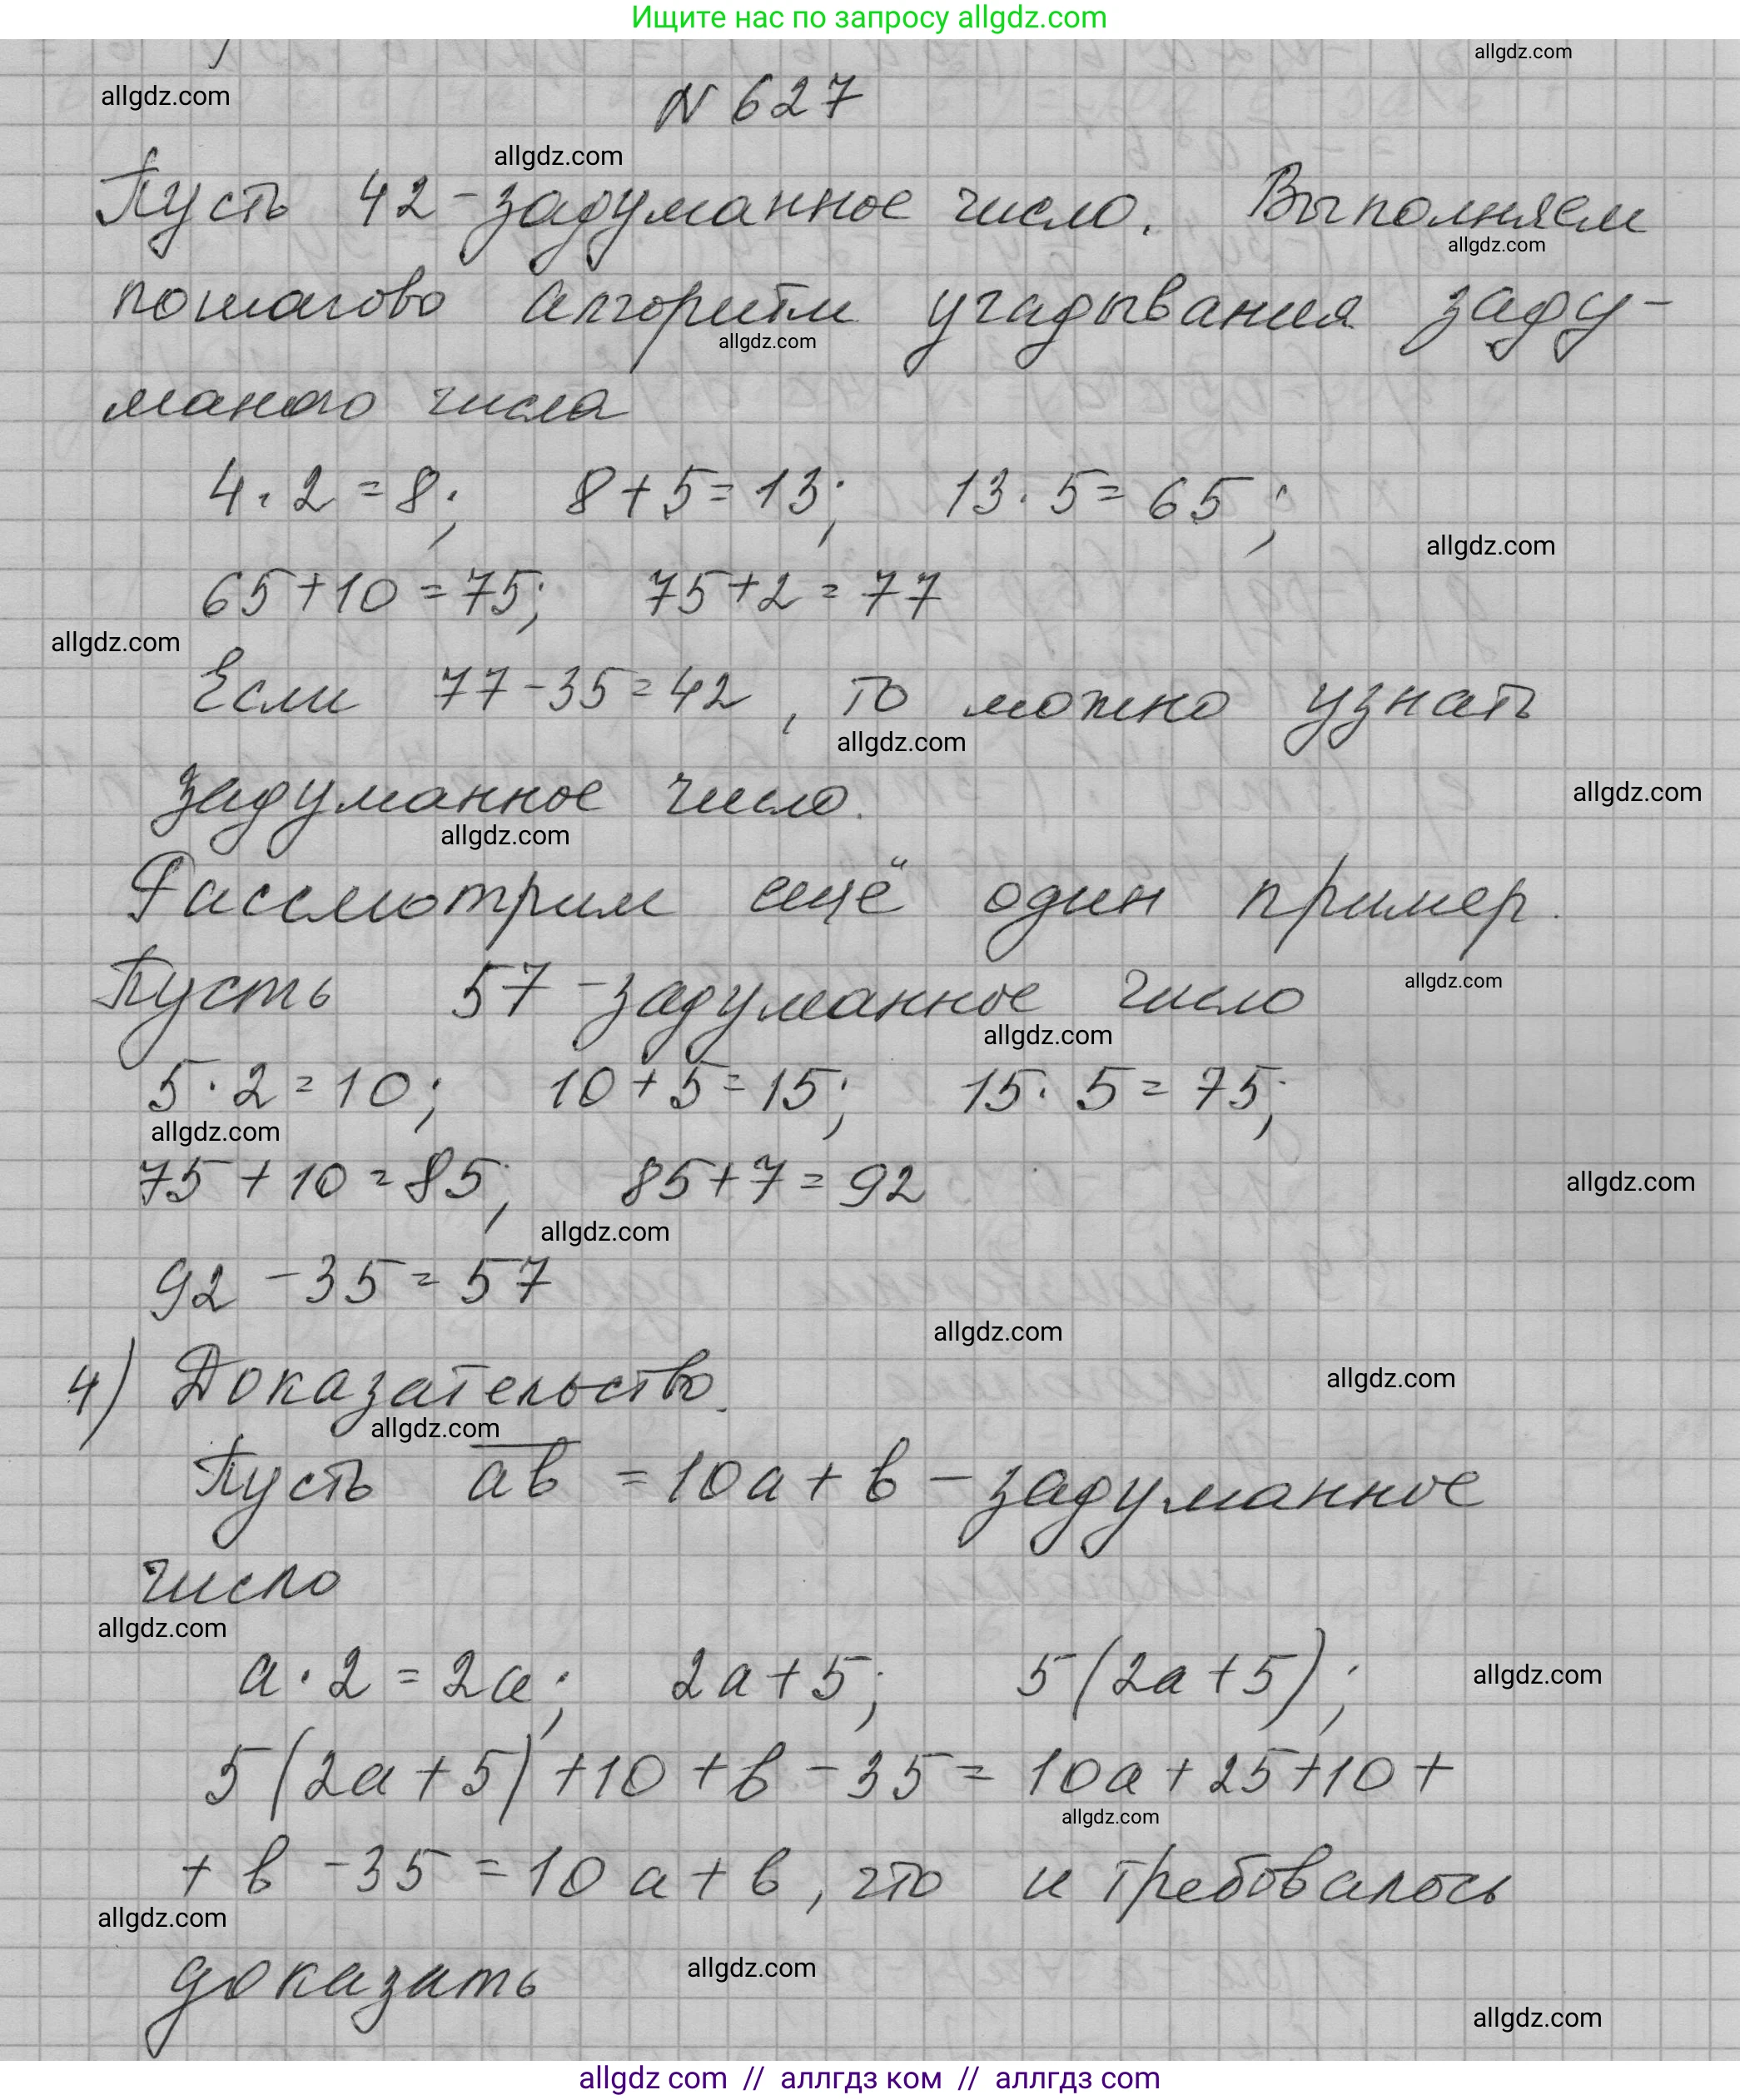 Ищите нас по запросу allgdz.com
allgdz.com
allgdz.com
N 627
allgdz.com
Пусть 42 - задуманное число. Выполняем
allgdz.com
пошагово алгоритм угадывания заду-
allgdz.com
маного числа
4 · 2 = 8; 8 + 5 = 13; 13 · 5 = 65;
allgdz.com
65 + 10 = 75; 75 + 2 = 77
allgdz.com
Если 77 - 35 = 42, то можно узнать
allgdz.com
задуманное число.
allgdz.com
allgdz.com
Рассмотрим ещё один пример.
Пусть 57 - задуманное число
allgdz.com
allgdz.com
5 · 2 = 10; 10 + 5 = 15; 15 · 5 = 75;
allgdz.com
75 + 10 = 85; 85 + 7 = 92
allgdz.com
allgdz.com
92 - 35 = 57
allgdz.com
4) Доказательство.
allgdz.com
allgdz.com
Пусть a̅b̅ = 10a + b - задуманное
число
allgdz.com
a · 2 = 2a; 2a + 5; 5(2a + 5);
allgdz.com
5(2a + 5) + 10 + b - 35 = 10a + 25 + 10 +
allgdz.com
+ b - 35 = 10a + b, что и требовалось
allgdz.com
доказать
allgdz.com
allgdz.com
allgdz com // аллгдз ком // аллгдз com